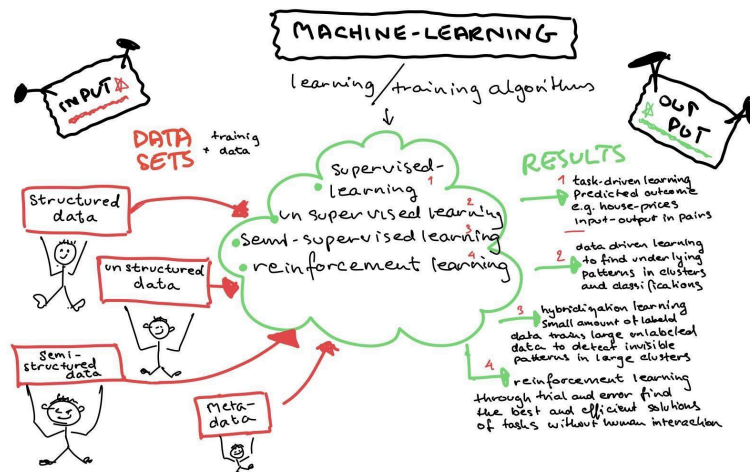 MACHINE-LEARNING
learning/training algorithms
INPUT
OUT
PUT
DATA
SETS
trainig
+ data
Structured
data
unstructured
data
Semi-
structured
data
Meta-
data
supervised-
learning 1
unsupervised learning 2
semi-supervised learning 3
reinforcement learning 4
RESULTS
1 task-driven learning
Predicted outcome
e.g. house-prices
input-output in pairs
2 data driven learning
to find underlying
patterns in clusters
and classifications
3 hybridization learning
small amount of labeled
data trains large unlabeled
data to detect invisible
patterns in large clusters
4 reinforcement learning
through trial and error find
the best and efficient solutions
of tasks without human interaction